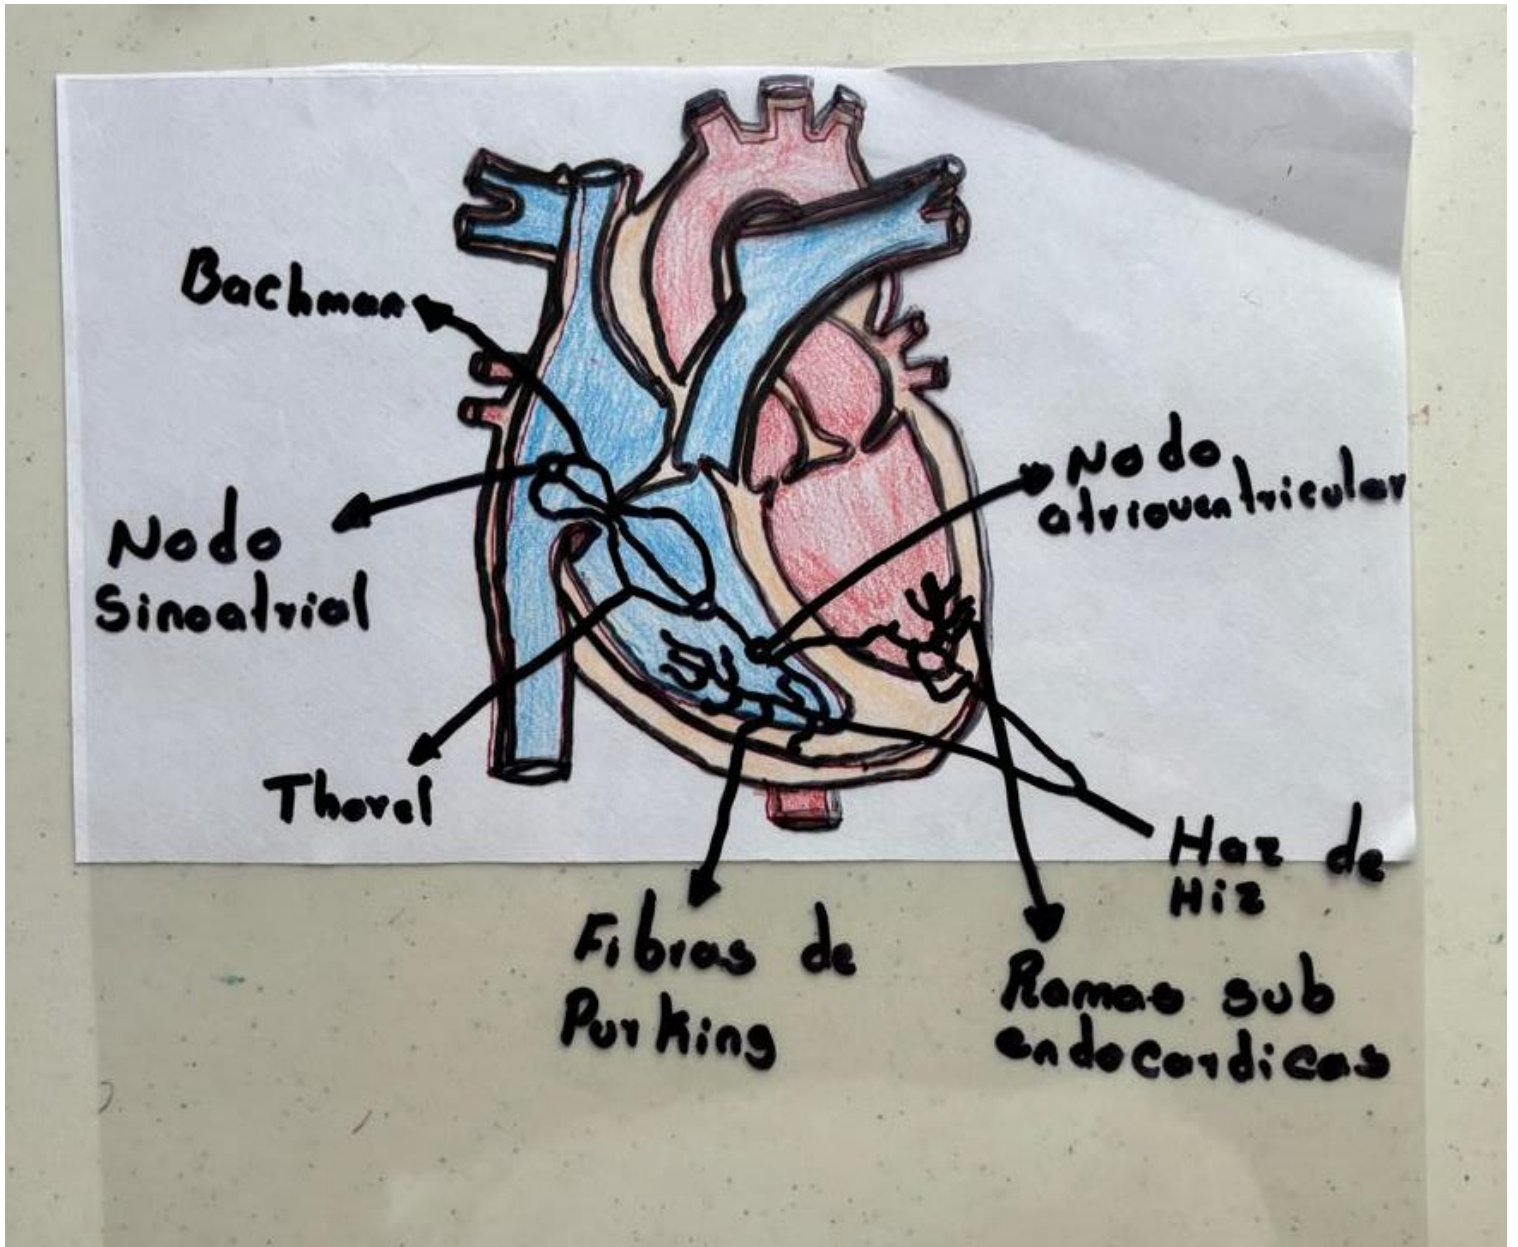 Bachman
Nodo
Sinoatrial
Thorel
Nodo
atrioventricular
Haz de
Hiz
Fibras de
Purking
Ramas sub
endocardicas